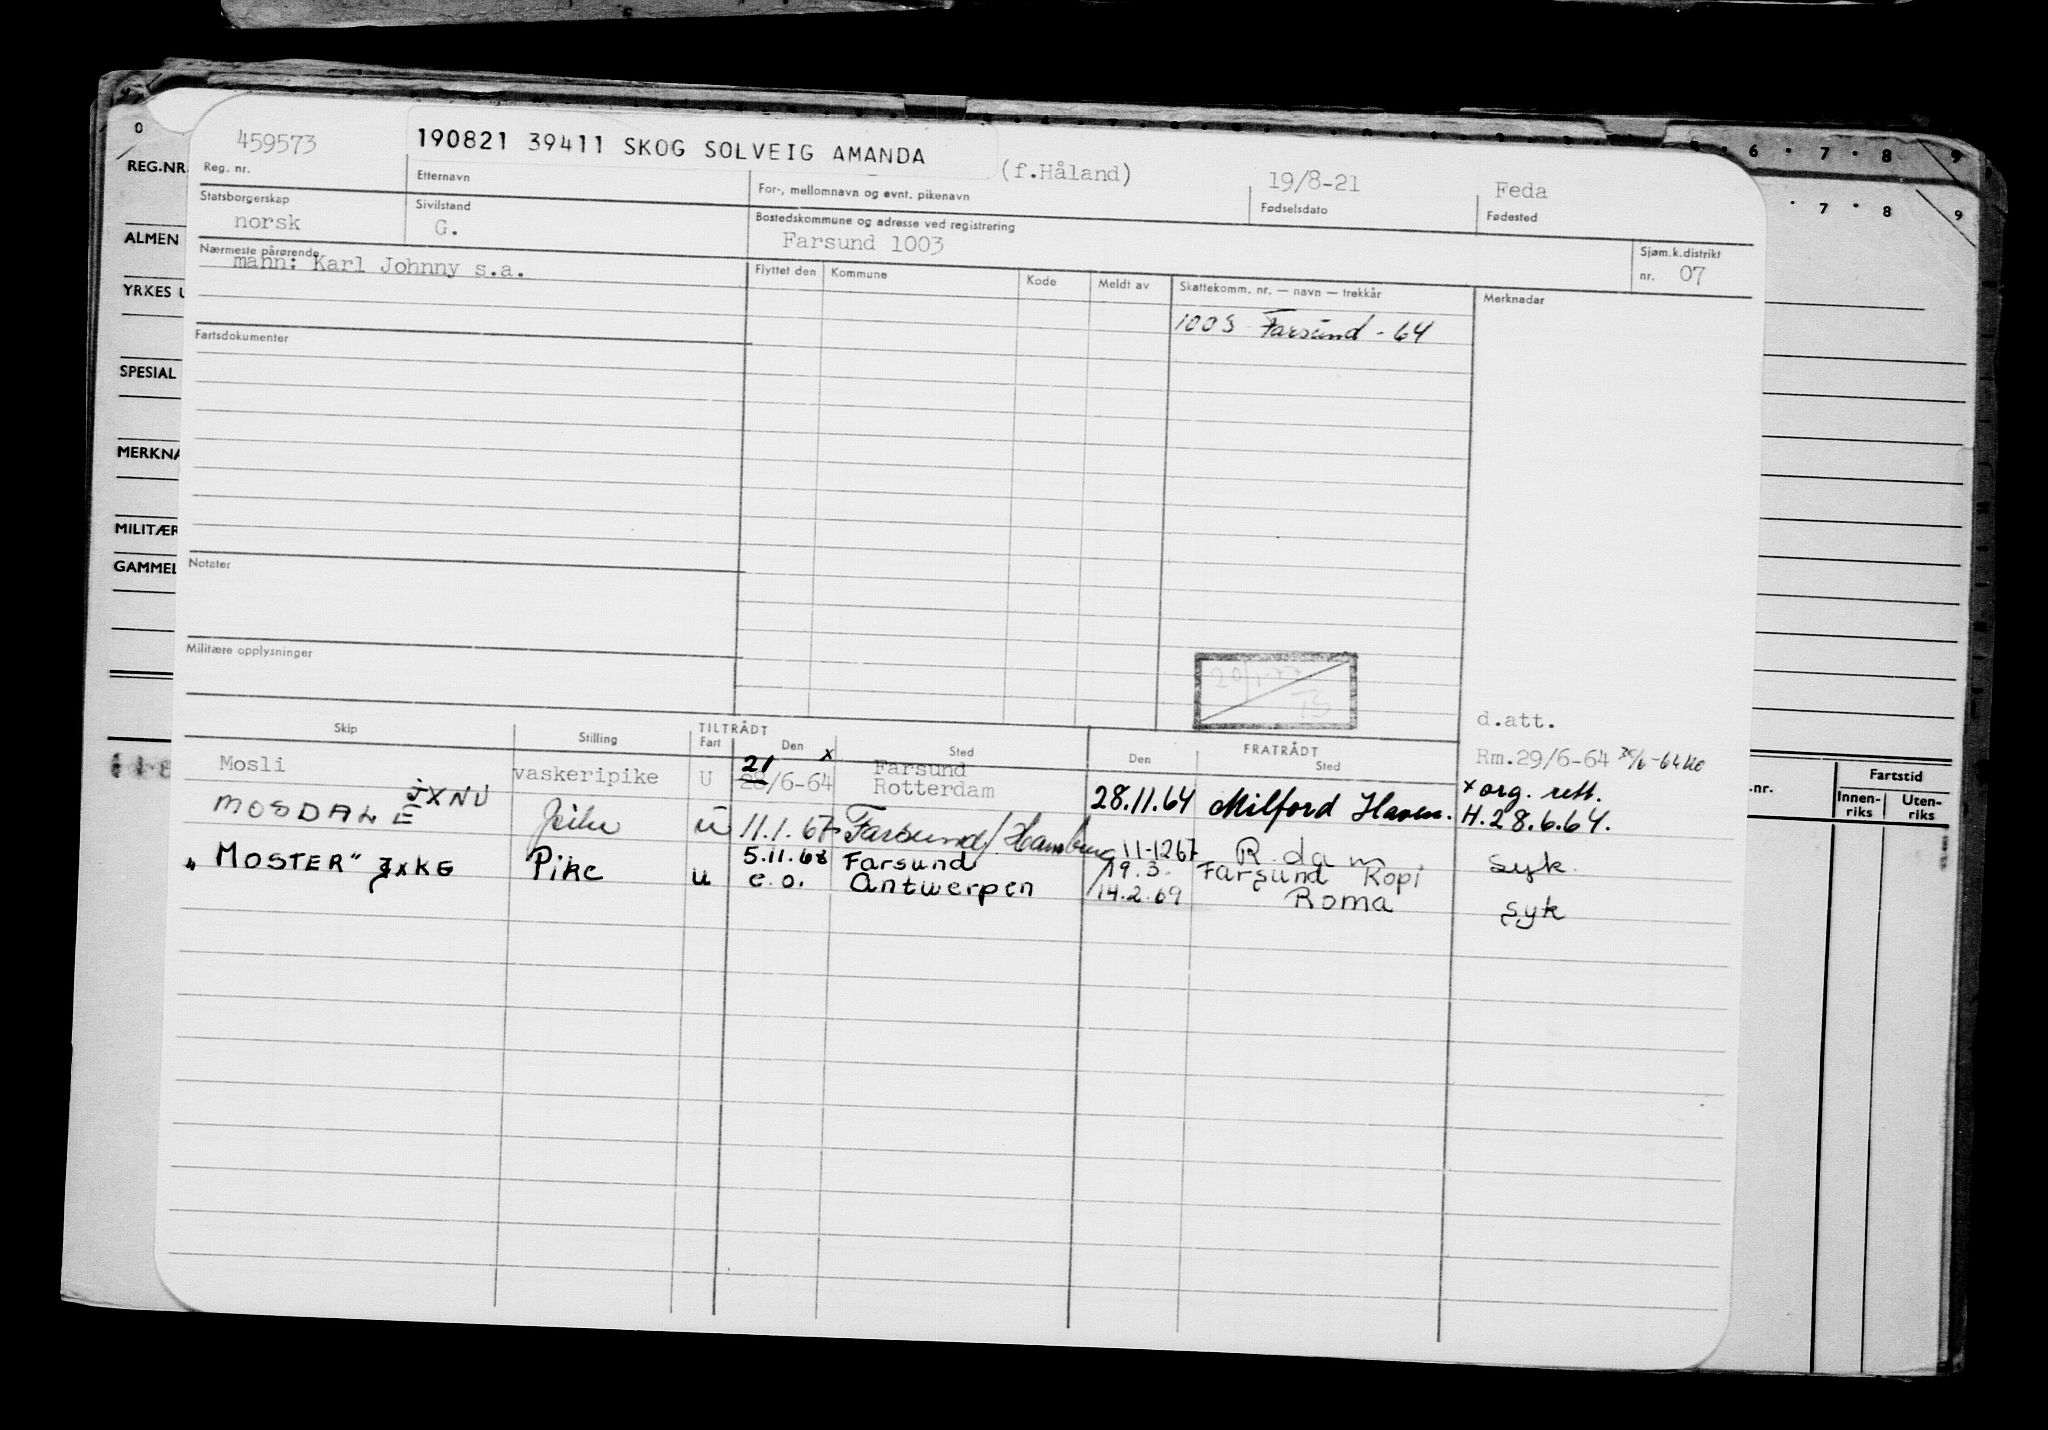 0
6 · 7 · 8 9
REG.NR.
7 · 8 9
ALMEN
YRKES U
SPESIAL
MERKNA
MILITÆR
GAMMEL
459573 190821 39411 SKOG SOLVEIG AMANDA (f.Håland) 19/8-21 Feda
Reg. nr. Etternavn For-, mellomnavn og evnt. pikenavn Fødselsdato Fødested
Statsborgerskap Sivilstand Bostedskommune og adresse ved registrering
norsk G. Farsund 1003
Sjøm.k.distrikt
nr. 07
Nærmeste pårørende
mann: Karl Johnny s.a.
Flyttet den Kommune Kode Meldt av Skattekomm. nr. — navn — trekkår Merknadar
1003 Farsund - 64
Fartsdokumenter
Notater
Militære opplysninger
d.att.
Skip Stilling TILTRÅDT FRATRÅDT
Fart Den Sted Den Sted
Mosli vaskeripike U 21 x Farsund
28/6-64 Rotterdam 28.11.64 Milford Haven.
Rm.29/6-64
x org. rett.
H.28.6.64.
MOSDALE JXNU Pike u 11.1.67 Farsund/Hamburg 11-1267 R.dam syk.
"MOSTER" JXKG Pike u 5.11.68 Farsund 19.3. Farsund Kopi
e.o. Antwerpen 14.2.69 Roma syk
.nr. Fartstid
Innen-
riks
Uten-
riks